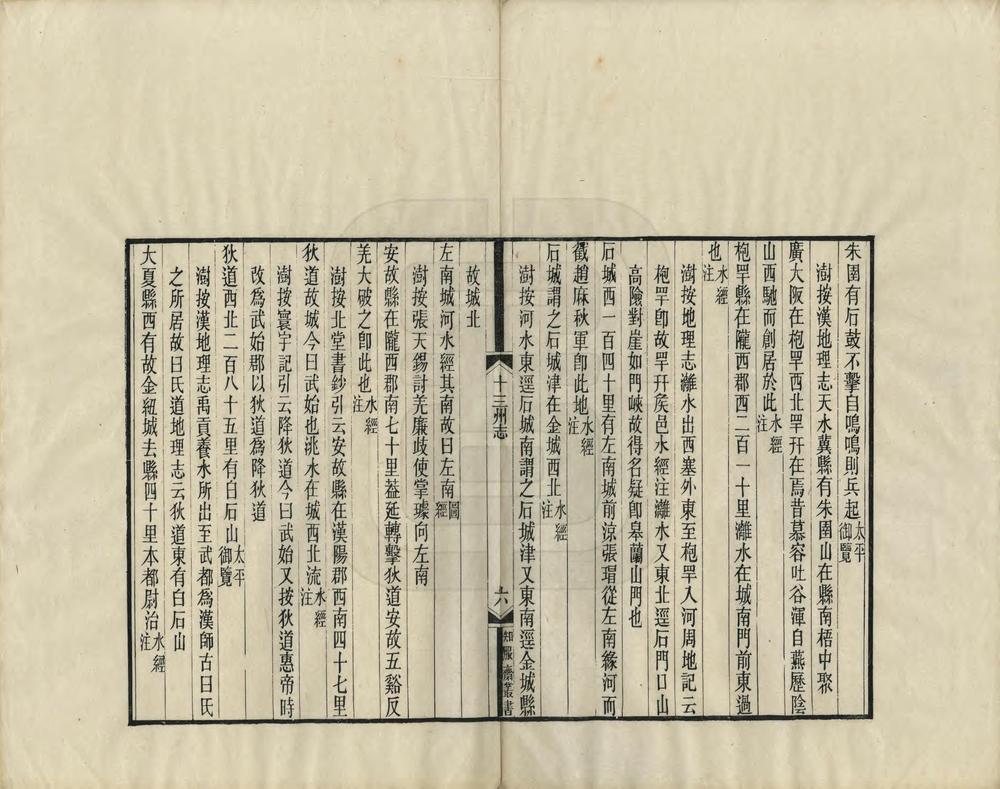 朱圉有石鼓不擊自鳴鳴則兵起太平御覽
澍按漢地理志天水冀縣有朱圉山在縣南梧中聚
廣大阪在枹罕西北罕幵在焉昔慕容吐谷渾自燕歷陰
山西馳而創居於此水經注
枹罕縣在隴西郡西二百一十里灕水在城南門前東過
也水經注
澍按地理志灕水出西塞外東至枹罕入河周地記云
枹罕卽故罕幵矦邑水經注灕水又東北逕石門口山
高險對崖如門峽故得名疑卽皋蘭山門也
石城西一百四十里有左南城前涼張瑁從左南緣河而
截趙麻秋軍卽此地水經注
石城謂之石城津在金城西北水經注
澍按河水東逕石城南謂之石城津又東南逕金城縣
十三州志
六
知服齋叢書
故城北
左南城河水經其南故曰左南圖經
澍按張天錫討羌廉歧使掌璩向左南
安故縣在隴西郡南七十里葢延轉擊狄道安故五谿反
羌大破之卽此也水經注
澍按北堂書鈔引云安故縣在漢陽郡西南四十七里
狄道故城今曰武始也洮水在城西北流水經注
澍按寰宇記引云降狄道今曰武始又按狄道惠帝時
改爲武始郡以狄道爲降狄道
狄道西北二百八十五里有白石山太平御覽
澍按漢地理志禹貢養水所出至武都爲漢師古曰氐
之所居故曰氐道地理志云狄道東有白石山
大夏縣西有故金紐城去縣四十里本都尉治水經注